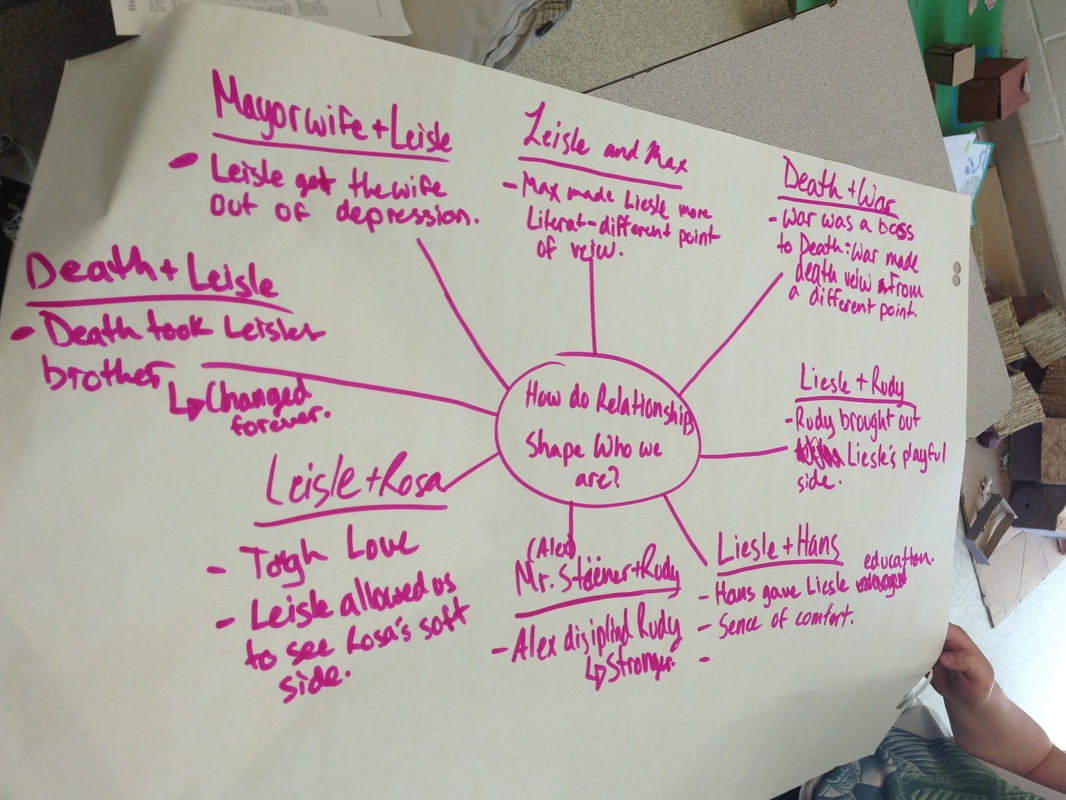 Mayor wife + Leisle
• Leisle got the wife
out of depression.
Leisle and Max
- Max made Liesle more
Literat - different point
of veiw.
Death + War
- War was a boss
to Death: War made
death veiw from
a different point.
Death + Leisle
• Death took Leisles
brother
↳ Changed
forever.
How do Relationships
shape Who we
are?
Liesle + Rudy
- Rudy brought out
Liesle's playful
side.
Leisle + Rosa
- Togh Love
- Leisle allowed us
to see Rosa's soft
side.
(Alex)
Mr. Steiner + Rudy
- Alex disiplind Rudy
↳ Stronger.
Liesle + Hans
- Hans gave Liesle education.
- Sence of comfort.
-